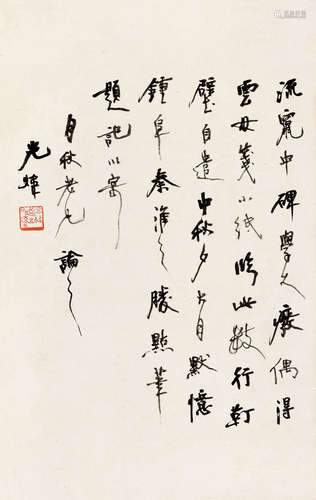 流寓中碑學久廢偶得
雲母箋小紙臨此數行釘
壁自遣中秋夕月默憶
鍾阜秦淮之勝點筆
題記以寄
月秋老兄論之
光煒